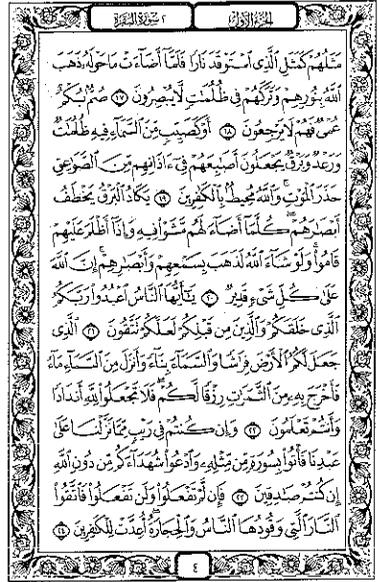 الجزء الأول ٢ سورة البقرة
مَثَلُهُمْ كَمَثَلِ ٱلَّذِى ٱسْتَوْقَدَ نَارًا فَلَمَّآ أَضَآءَتْ مَا حَوْلَهُۥ ذَهَبَ
ٱللَّهُ بِنُورِهِمْ وَتَرَكَهُمْ فِى ظُلُمَٰتٍ لَّا يُبْصِرُونَ ١٧ صُمٌّۢ بُكْمٌ
عُمْىٌ فَهُمْ لَا يَرْجِعُونَ ١٨ أَوْ كَصَيِّبٍ مِّنَ ٱلسَّمَآءِ فِيهِ ظُلُمَٰتٌ
وَرَعْدٌ وَبَرْقٌ يَجْعَلُونَ أَصَٰبِعَهُمْ فِىٓ ءَاذَانِهِم مِّنَ ٱلصَّوَٰعِقِ
حَذَرَ ٱلْمَوْتِ ۚ وَٱللَّهُ مُحِيطٌۢ بِٱلْكَٰفِرِينَ ١٩ يَكَادُ ٱلْبَرْقُ يَخْطَفُ
أَبْصَٰرَهُمْ ۖ كُلَّمَآ أَضَآءَ لَهُم مَّشَوْا۟ فِيهِ وَإِذَآ أَظْلَمَ عَلَيْهِمْ
قَامُوا۟ ۚ وَلَوْ شَآءَ ٱللَّهُ لَذَهَبَ بِسَمْعِهِمْ وَأَبْصَٰرِهِمْ ۚ إِنَّ ٱللَّهَ
عَلَىٰ كُلِّ شَىْءٍ قَدِيرٌ ٢٠ يَٰٓأَيُّهَا ٱلنَّاسُ ٱعْبُدُوا۟ رَبَّكُمُ
ٱلَّذِى خَلَقَكُمْ وَٱلَّذِينَ مِن قَبْلِكُمْ لَعَلَّكُمْ تَتَّقُونَ ٢١ ٱلَّذِى
جَعَلَ لَكُمُ ٱلْأَرْضَ فِرَٰشًا وَٱلسَّمَآءَ بِنَآءً وَأَنزَلَ مِنَ ٱلسَّمَآءِ مَآءً
فَأَخْرَجَ بِهِۦ مِنَ ٱلثَّمَرَٰتِ رِزْقًا لَّكُمْ ۖ فَلَا تَجْعَلُوا۟ لِلَّهِ أَندَادًا
وَأَنتُمْ تَعْلَمُونَ ٢٢ وَإِن كُنتُمْ فِى رَيْبٍ مِّمَّا نَزَّلْنَا عَلَىٰ
عَبْدِنَا فَأْتُوا۟ بِسُورَةٍ مِّن مِّثْلِهِۦ وَٱدْعُوا۟ شُهَدَآءَكُم مِّن دُونِ ٱللَّهِ
إِن كُنتُمْ صَٰدِقِينَ ٢٣ فَإِن لَّمْ تَفْعَلُوا۟ وَلَن تَفْعَلُوا۟ فَٱتَّقُوا۟
ٱلنَّارَ ٱلَّتِى وَقُودُهَا ٱلنَّاسُ وَٱلْحِجَارَةُ ۖ أُعِدَّتْ لِلْكَٰفِرِينَ ٢٤
٤